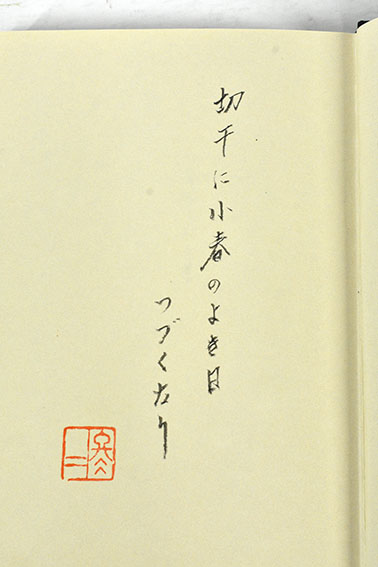 切干に小春のよき日
つづくなり